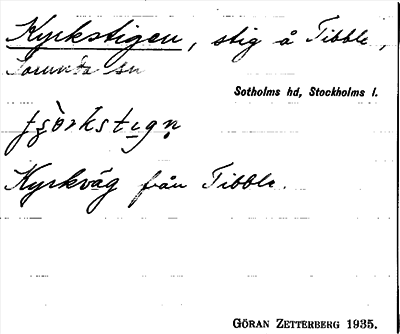 Kyrkstigen, stig å Tibble,
Sorunda sn
Sotholms hd, Stockholms l.
Kyrkväg från Tibble.
GÖRAN ZETTERBERG 1935.